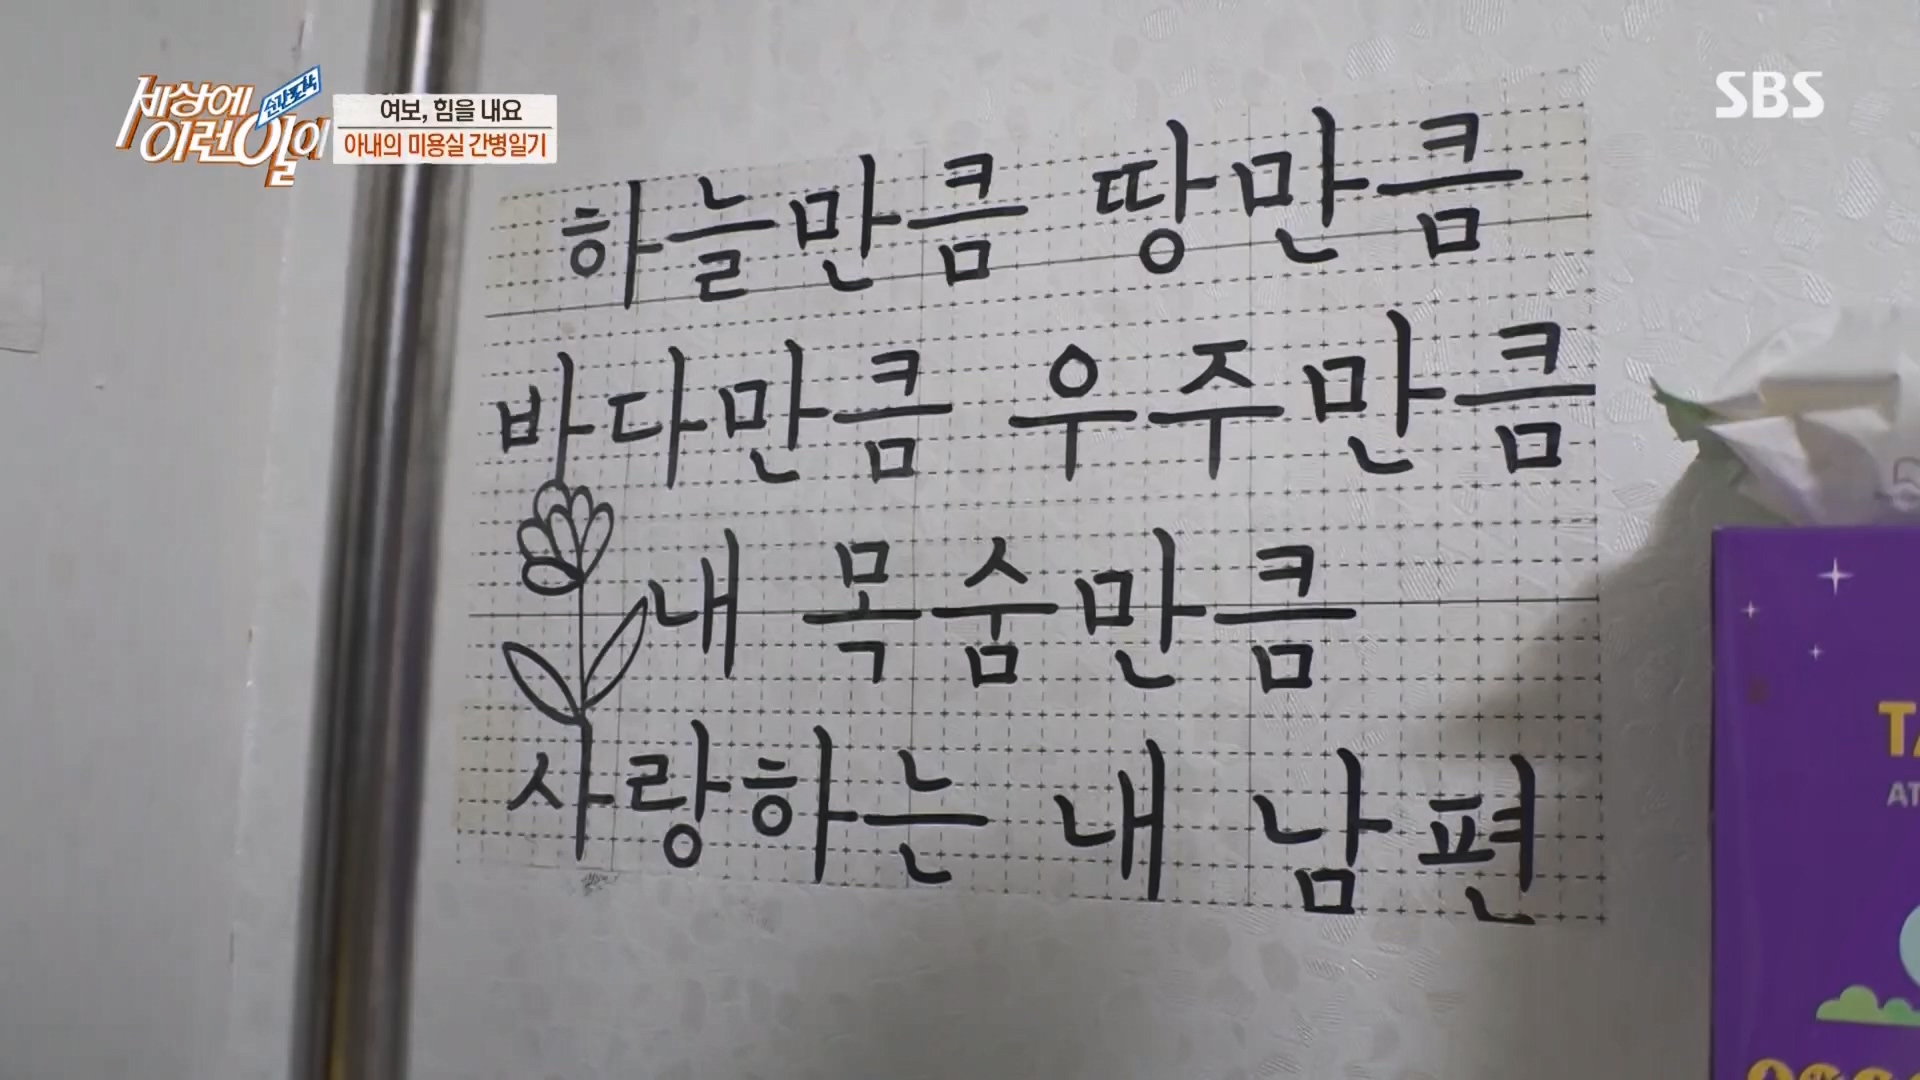 순간포착
세상에
이런일이
여보, 힘을 내요
아내의 미용실 간병일기
SBS
하늘만큼 땅만큼
바다만큼 우주만큼
내 목숨만큼
사랑하는 내 남편